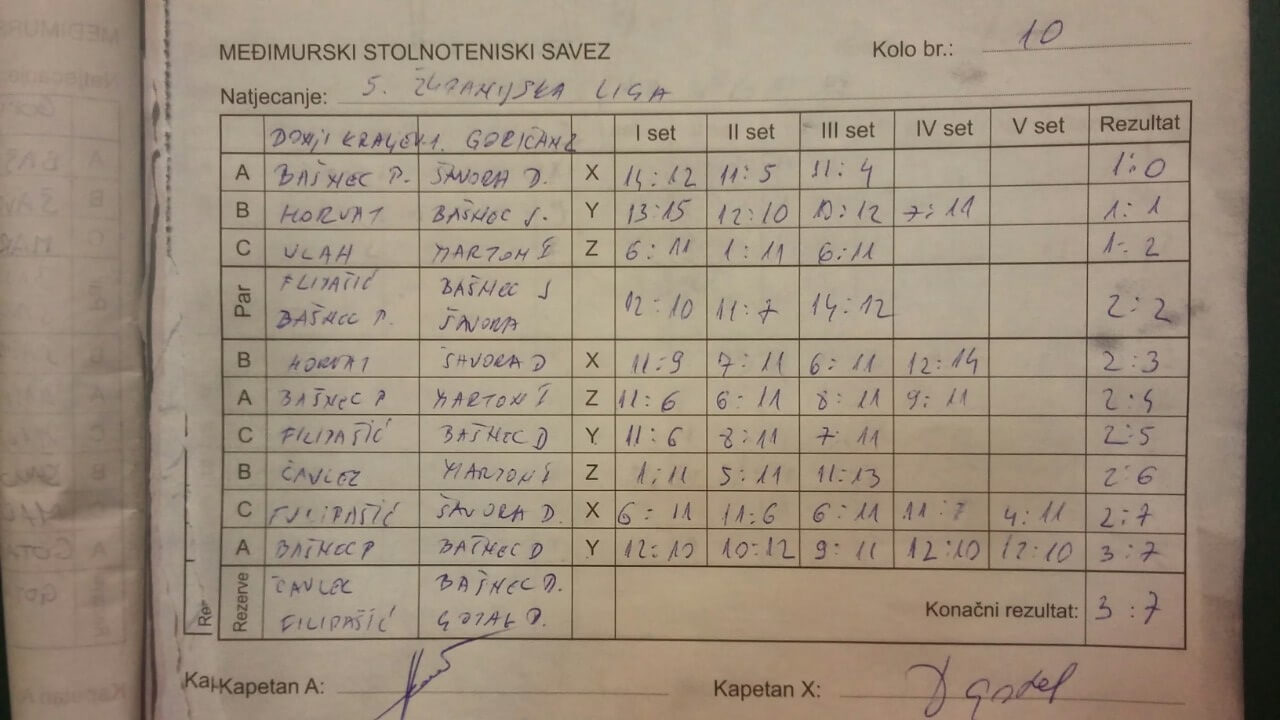 MEĐIMURSKI STOLNOTENISKI SAVEZ Kolo br.: 10
Natjecanje: 5. ŽUPANIJSKA LIGA
DONJI KRALJEV. 1. GORIČAN 2 I set II set III set IV set V set Rezultat
A BAŠNEC P. ŠAVORA D. X 14:12 11:5 11:4 1:0
B HORVAT BAŠNEC S. Y 13:15 12:10 10:12 7:11 1:1
C VLAH MARTON I Z 6:11 1:11 6:11 1:2
Par FILIPAŠIĆ BAŠNEC S
BAŠNEC P. ŠAVORA 12:10 11:7 14:12 2:2
B HORVAT ŠAVORA D X 11:9 7:11 6:11 12:14 2:3
A BAŠNEC P MARTON I Z 11:6 6:11 8:11 9:11 2:4
C FILIPAŠIĆ BAŠNEC D Y 11:6 8:11 7:11 2:5
B ČAVLEC MARTON I Z 1:11 5:11 11:13 2:6
C FILIPAŠIĆ ŠAVORA D. X 6:11 11:6 6:11 11:7 4:11 2:7
A BAŠNEC P BAŠNEC D Y 12:10 10:12 9:11 12:10 12:10 3:7
Rezerve ČAVLEC BAŠNEC D.
FILIPAŠIĆ GOTAL D. Konačni rezultat: 3:7
Kapetan A: Kapetan X: D Gotal